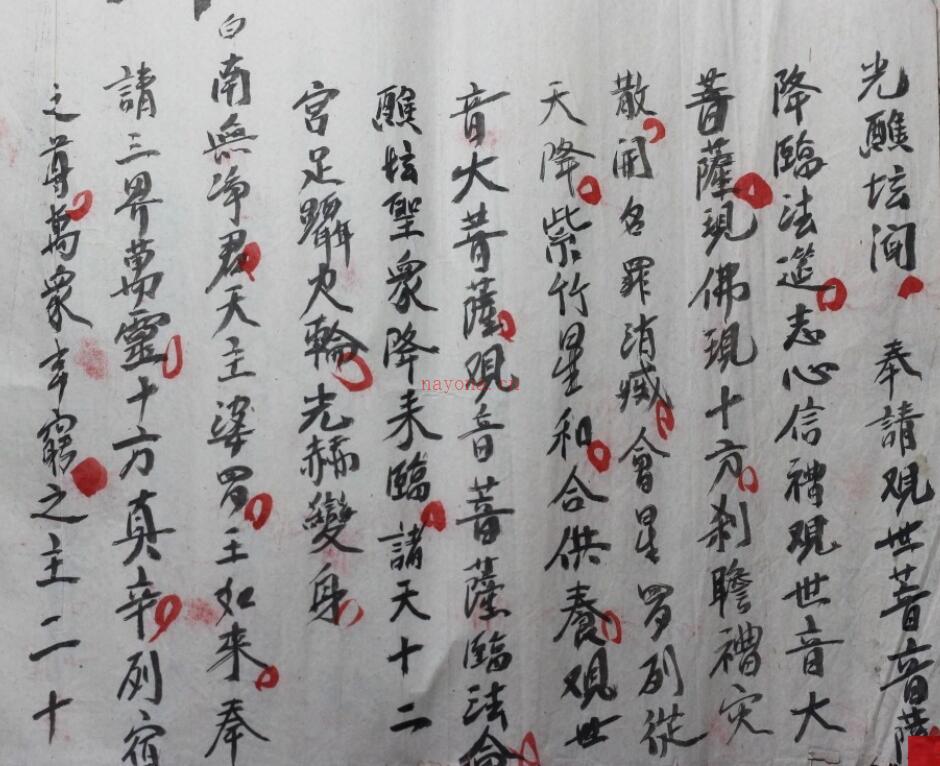 光醮坛间 奉請观世菩音薩
降臨法筵志心信禮現世音大
菩薩現佛現十方刹瞻禮灾
散開名罪消臧會星罗列從
天降紫竹星和合供養观世
音大菩薩观音菩薩臨法會
醮坛聖衆降来臨諸天十二
宮足躡火輪光赫變身
白南無净君天主婆罗王如来奉
請三界萬靈十方真宰列宿
之尊萬衆玄窮之主二十
nayona.cn